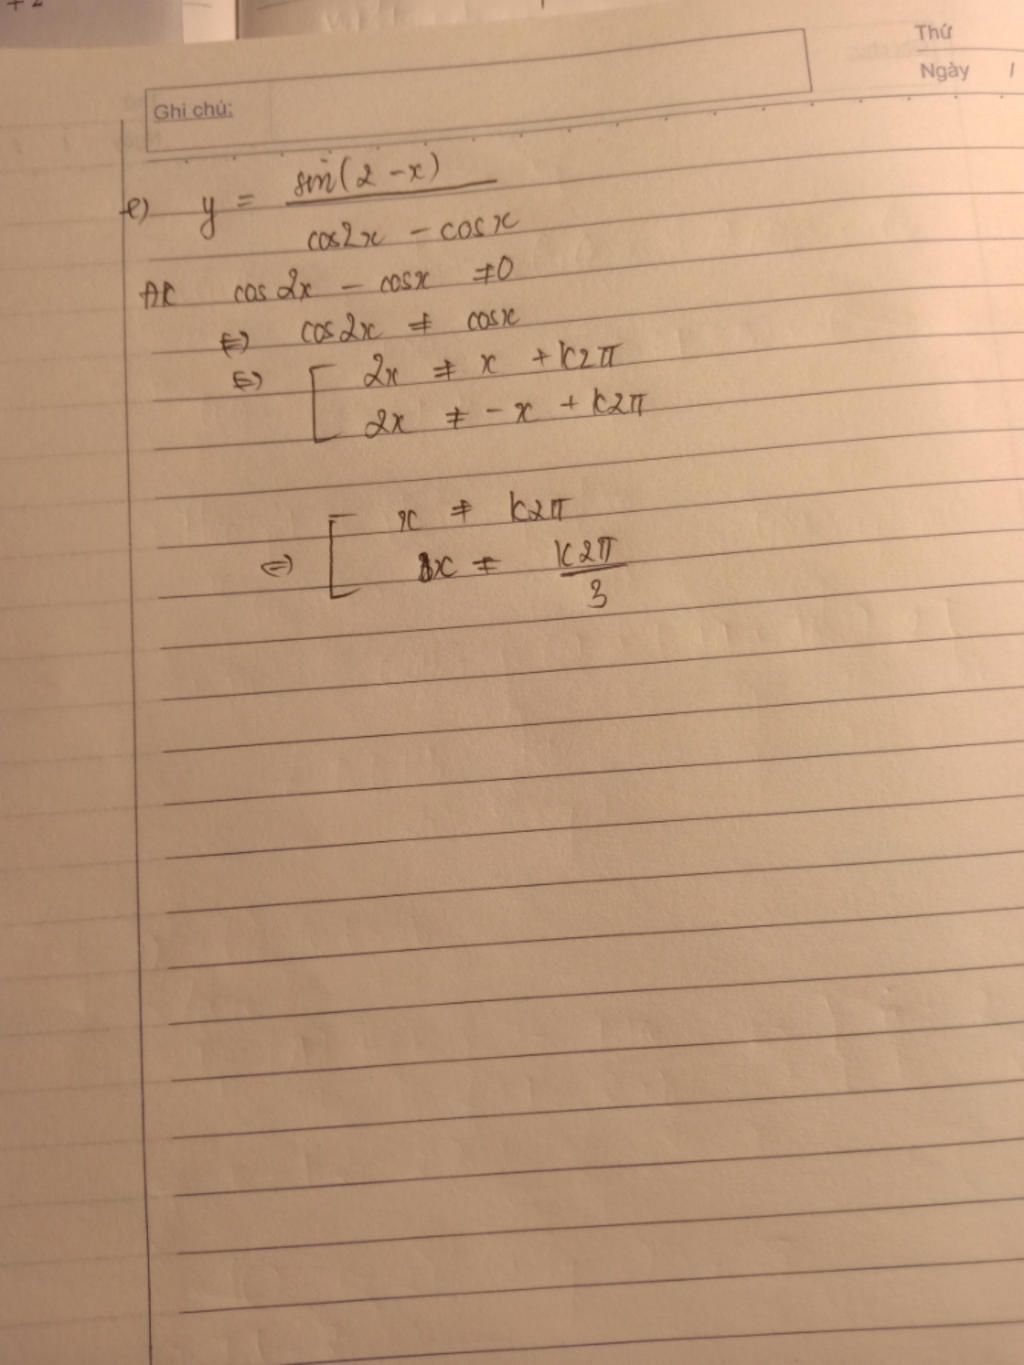 + 2
Thứ
Ngày /
Ghi chú:
e) y = sin(2 - x) / cos2x - cosx
ĐK cos 2x - cosx ≠ 0
⇔ cos2x ≠ cosx
⇔ [ 2x ≠ x + k2π
2x ≠ - x + k2π
⇔ [ x ≠ k2π
x ≠ k2π / 3